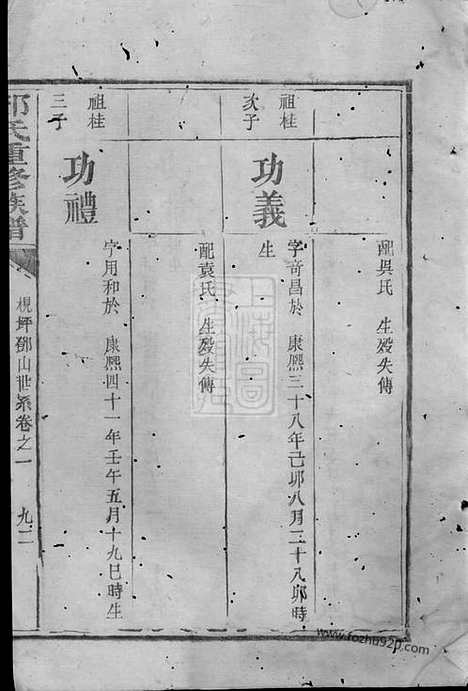 配吳氏 生歿失傳
祖桂
次子
功義
字奇昌於 康熙三十八年己卯八月二十八卯時
生
配袁氏 生歿失傳
祖桂
三子
功禮
字用和於 康熙四十一年壬午五月十九巳時生
氏重修族譜
梘坪鄧山世系卷之一
九二
www.fozhu920.com